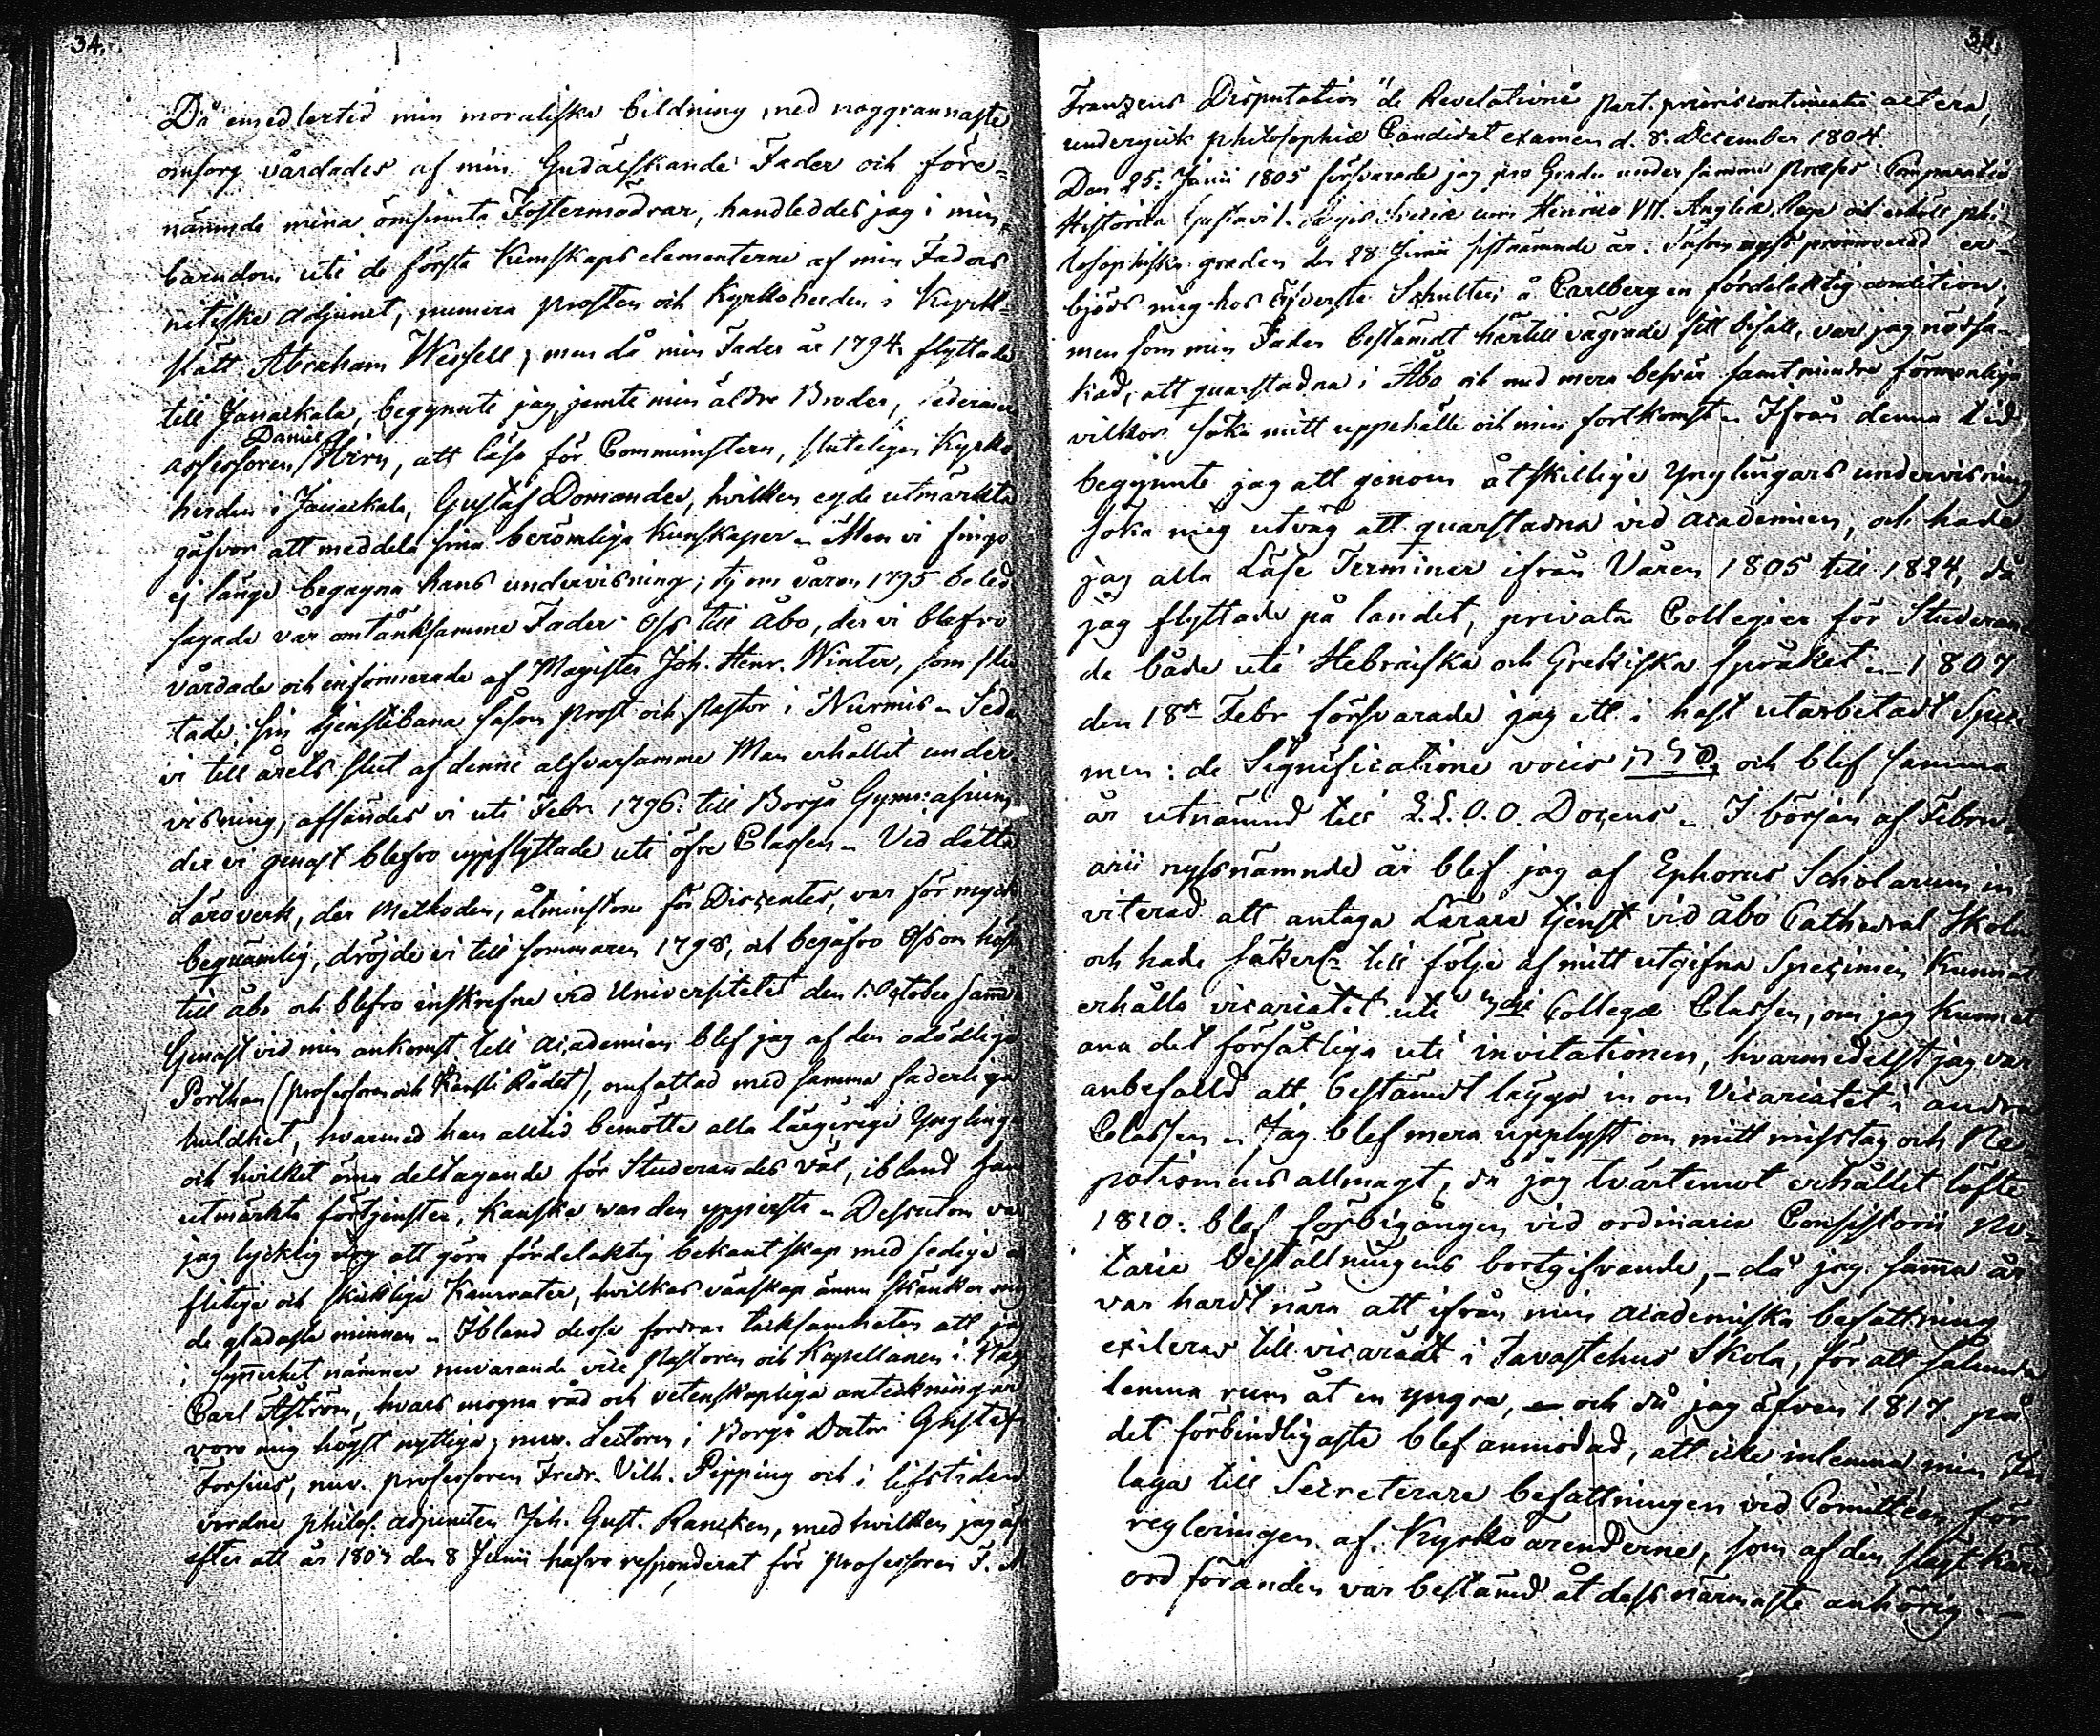 34.
Då emedlertid min moraliska bildning med noggrannaste
omsorg vårdades af min Gudälskande Fader och före-
nämnde mina ömsinnta Fostermödrar, handleddes jag i min
barndom uti de första Kunskaps elementerne af min Faders
adjunct, numera prosten och Kyrkoherden i Kyrk-
slätt Abraham Wessell; men då min Fader år 1794 flyttade
till Janackala, begynnte jag jemte min äldre Broder, sedermera
Daniel
assessoren Hirn, att läsa för Comministern, sluteligen Kyrko
herden i Janackala, Gustaf Domander, hvilken egde utmärkta
gåfvor att meddela sina berömliga Kunskaper. Men vi fingo
ej länge begagna hans undervisning; ty om våren 1795 beled
sagade vår omtänksamme Fader Oss till Åbo, der vi blefvo
vårdade och informerade af Magister Joh. Henr. Winter, som slu
tade sin tjenstebana såsom Prost och Pastor i Nurmis. Seda
vi till årets slut af denne alfvarsamme Man erhållit under-
visning, afsändes vi uti Febr. 1796 till Borgå Gymnasium
der vi genast blefvo uppflyttade uti öfre Classen. Vid detta
Läroverk, der Methoden, åtminstone för Discentes, var för myck
beqvämlig, dröjde vi till sommaren 1798, och begåfvo Oss om höst
till Åbo och blefvo inskrefne vid Universitetet den 1. October samma
Genast vid min ankomst till academien blef jag af den odödlige
Porthan (professoren och Kansli Rådet), omfattad med samma faderliga
huldhet, hvarmed han alltid bemötte alla lärgirige Ynglinga
och hvilket ömma deltagande för Studerandes väl, ibland hans
utmärkta förtjenster, kanske war den yppersta. Dessutom var
jag lycklig nog att göra fördelaktig bekantskap med sedige
flitige och skicklige Kamrater, hvilkas vänskap ännu skänker mig
de gladaste minnen. Ibland desse fordrar tacksamheten att jag
i synnerhet nämner nuvarande vice Pastoren och Kapellanen i
Carl Åström, hvars mogna råd och vetenskapliga anteckningar
voro mig högst nyttiga, nuv. Lectorn i Borgå Doctor Gustaf
Forsius, nuv. professoren Fredr. Vilh. Pipping och i lifstiden
vordne philos. adjuncten Joh. Gust. Rancken, med hvilken jag
efter att år 1803 den 8 Junii hafva responderat för Professoren F. M
Franzéns Disputation "de Revelatione part. prioris continuatio altera,
undergick philosophiæ Candidat examen d. 8. December 1804.
Den 25. Junii 1805 försvarade jag pro Gradu under samme præses: Comparatio
Historica Gustavi I. Regis Sveciæ cum Henrico VII. Angliæ Rege och erhöll phi-
losophiska graden den 28 Junii sistnämnde år. Såsom nyss promoverad er-
bjöds mig hos Öfverste Schulten å Carlberg en fördelaktig condition,
men som min Fader bestämdt härtill vägrade sitt bifall, var jag nödsa-
kad, att quarstadna i Åbo och med mera besvär samt mindre förmonliga
vilkor söka mitt uppehälle och min fortkomst. Ifrån denna tid
begynnte jag att genom åtskillige Ynglingars undervisning
söka mig utväg att quarstadna vid academien, och hade
jag alla Läse Terminer ifrån Våren 1805 till 1824, då
jag flyttade på landet, privata Collegier för Studeran-
de både uti Hebraiska och Grekiska Språket. 1807
den 18de Febr försvarade jag ett i hast utarbetadt Speci
men: de Significatione vocis och blef samma
år utnämnd till L.L.O.O. Docens. I början af Febru-
arii nyssnämnde år blef jag af Ephorus Scholarum in-
viterad att antaga Lärare tjenst vid Åbo Cathedral Skola
och hade säkert till följe af mitt utgifna Specimen kunnat
erhålla vicariatet uti Collegæ Classen, om jag kunnat
ana det försåtliga uti invitationen, hvarmedelst jag var
anbefalld att bestämdt lägga in om Vicariatet i andra
Classen. Jag blef mera upplyst om mitt misstag och Ne-
potismens allmagt, då jag tvärtemot erhållet löfte
1810 blef förbigången vid ordinarie Consistorii No-
tarie beställningens bortgifvande, – då jag samma år
var hardt nära att ifrån min academiska befattning
exileras till vicariat i Tavastehus Skola, för att sålunda
lemna rum åt en yngre, – och då jag äfven 1817 på
det förbindligaste blef anmodad, att icke inlemna min In
laga till Secreterare befattningen vid Comitteen för
regleringen af Kyrko ärenderne, som af den
ordföranden var bestämd åt dess närmaste anhörig. –